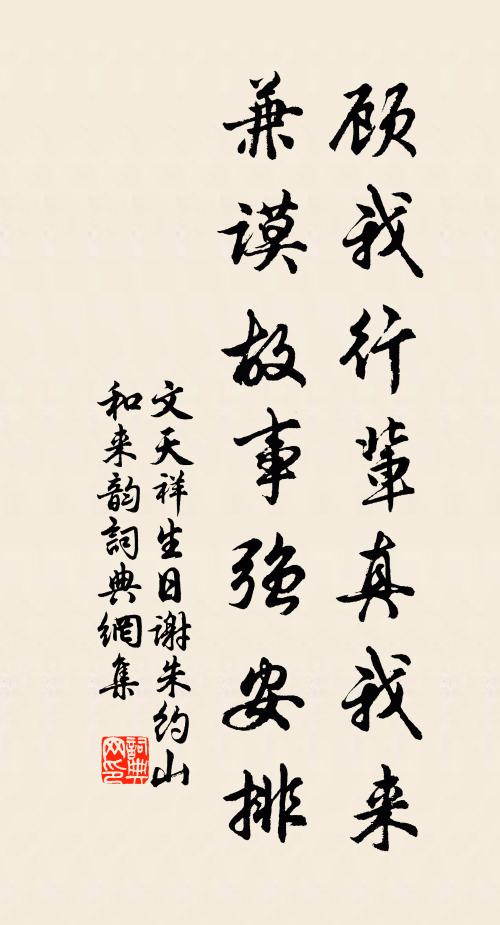 顾我行輩真我来
兼谟故事强安排
文天祥生日谢朱约山
和来韵詞典網集
詞典網印